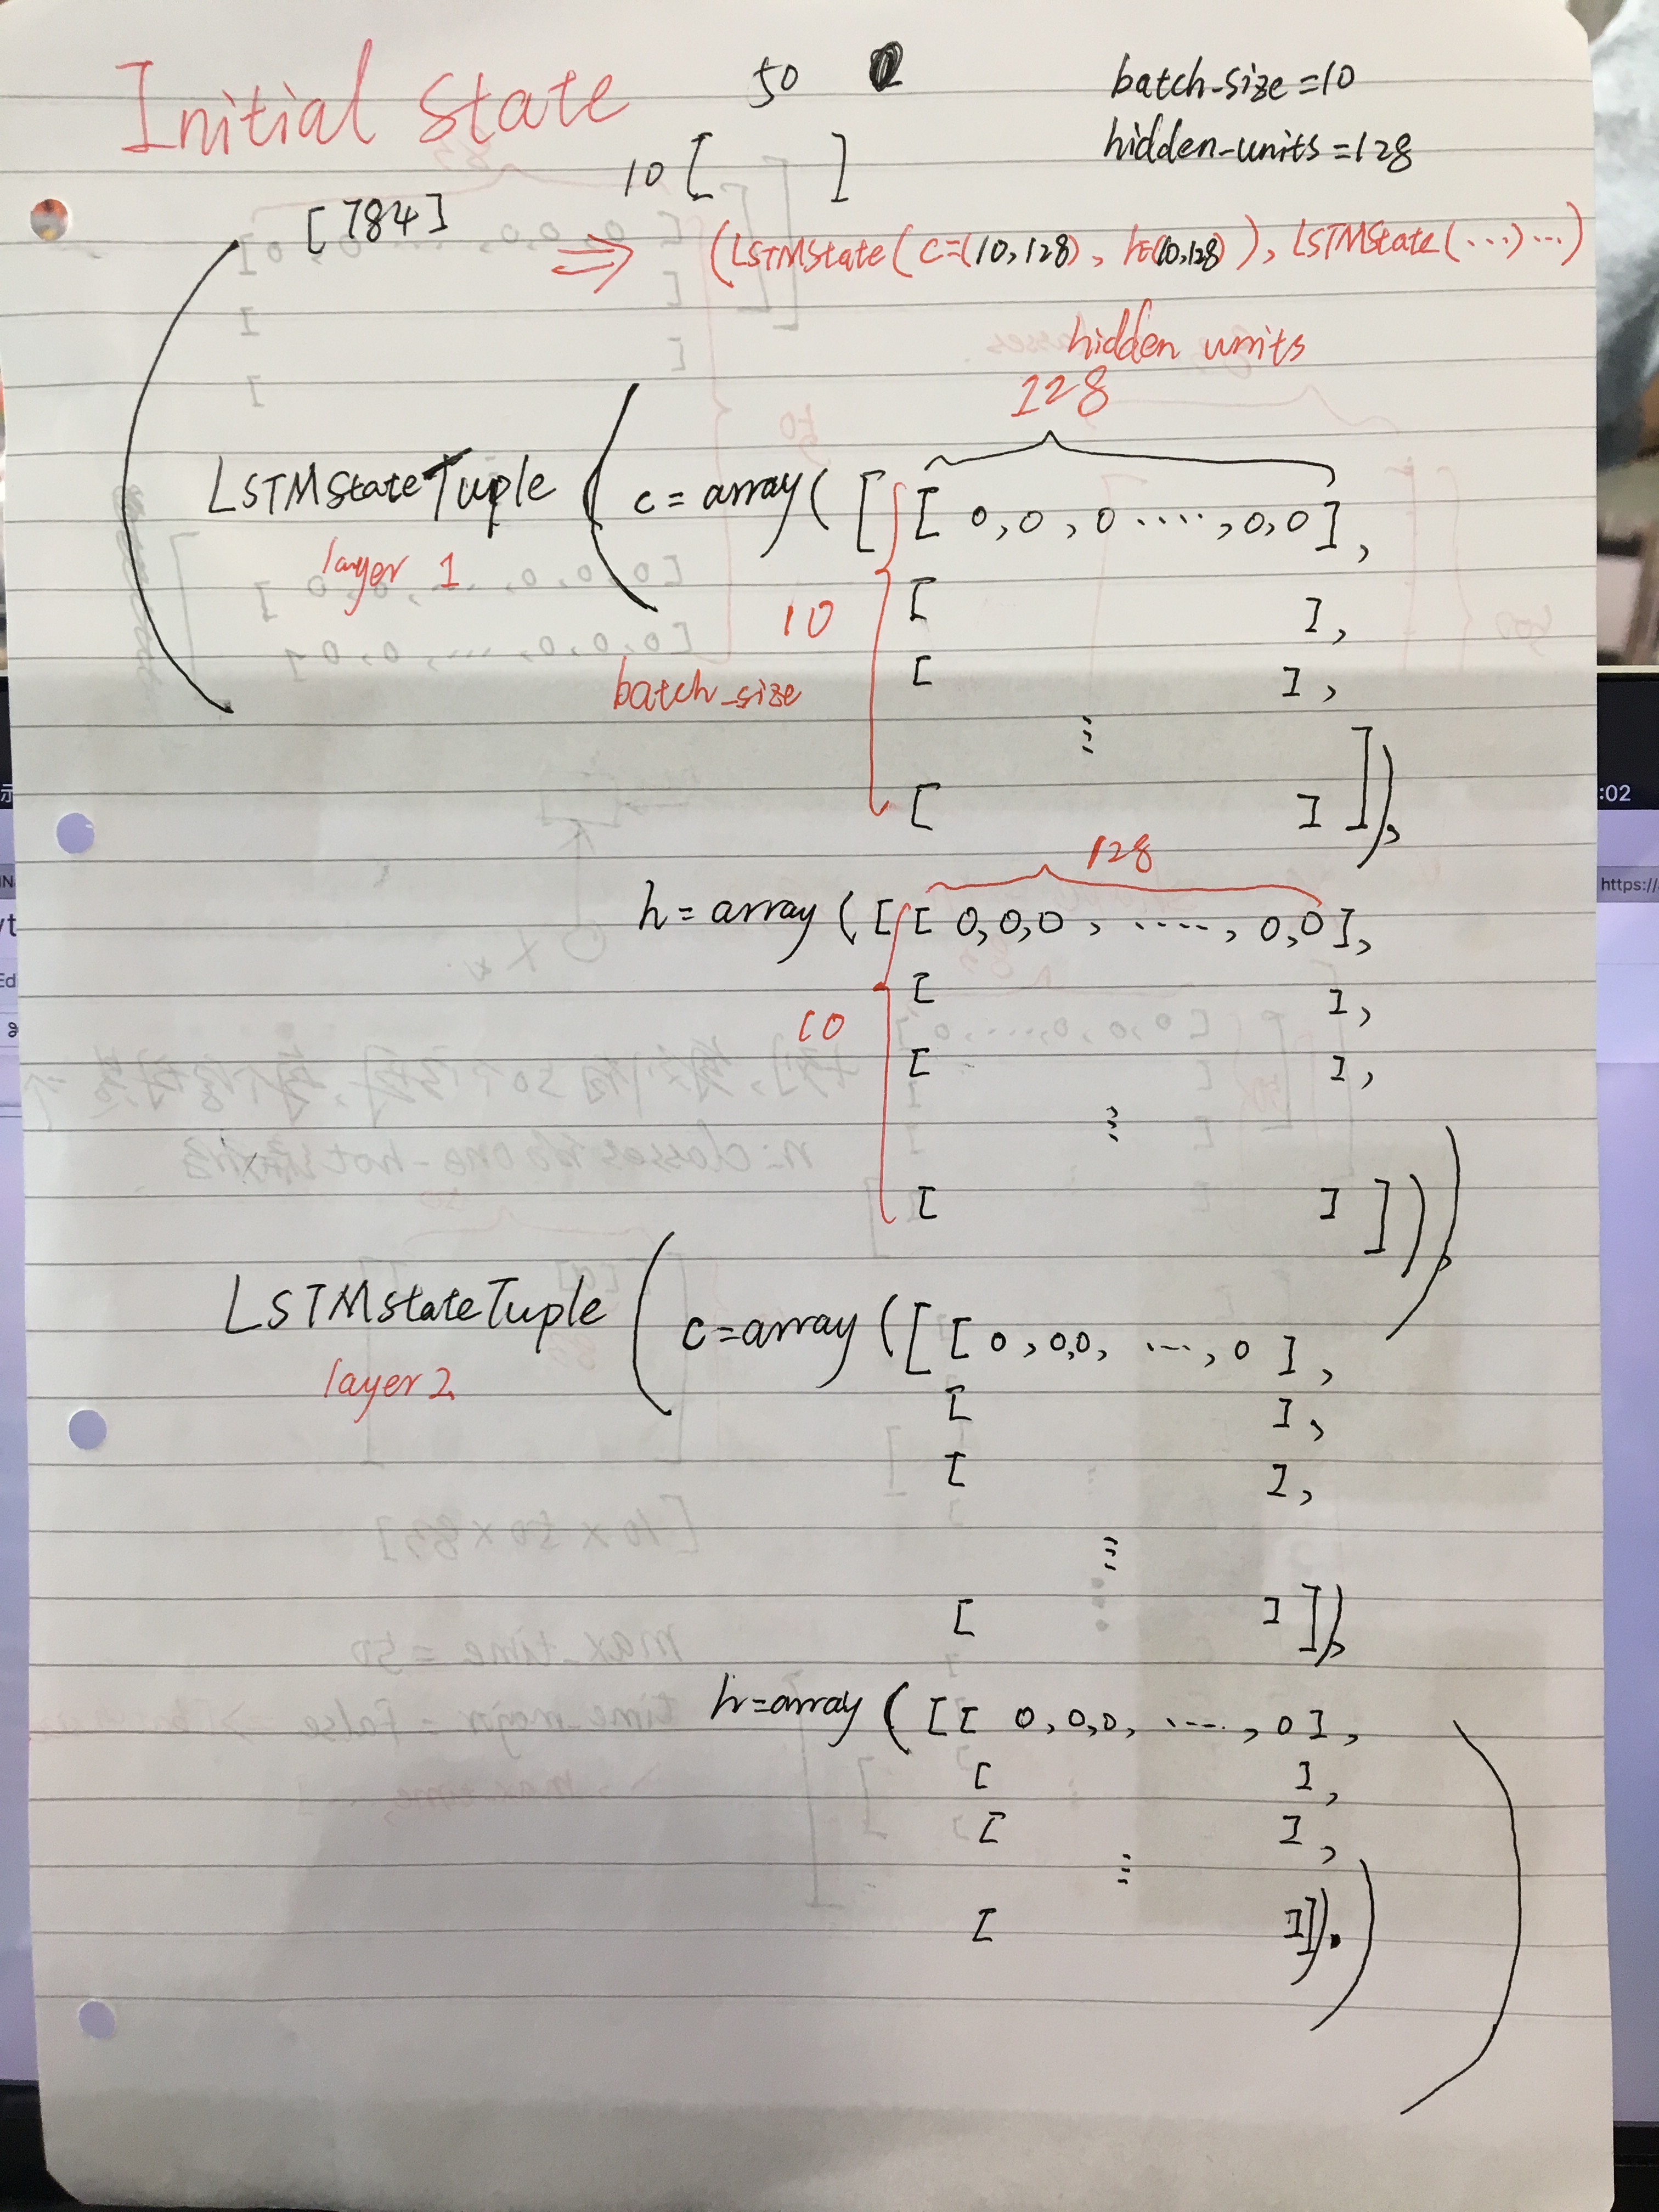 Initial state
50
batch_size=10
hidden-units=128
10 [ ]
[784]
⇒ (LSTMState(c=(10,128), h=(10,128)), LSTMState(...)...)
hidden units
128
LSTMStateTuple ( c = array ( [ [ 0,0,0....,0,0],
layer 1
[ ],
10
[ ],
batch_size
⋮
[ ] ] ),
128
h = array ( [ [ 0,0,0, ....., 0,0],
[ ],
10
[ ],
⋮
[ ] ] ) ),
LSTMstateTuple ( c=array ( [ [ 0,0,0, ...,0 ],
layer2
[ ],
[ ],
⋮
[ ] ] ),
h=array ( [ [ 0,0,0, ....,0],
[ ],
[ ],
⋮
[ ] ] ) ) )
[10×50×83]
max_time = 50
time_major = False
:02
https://